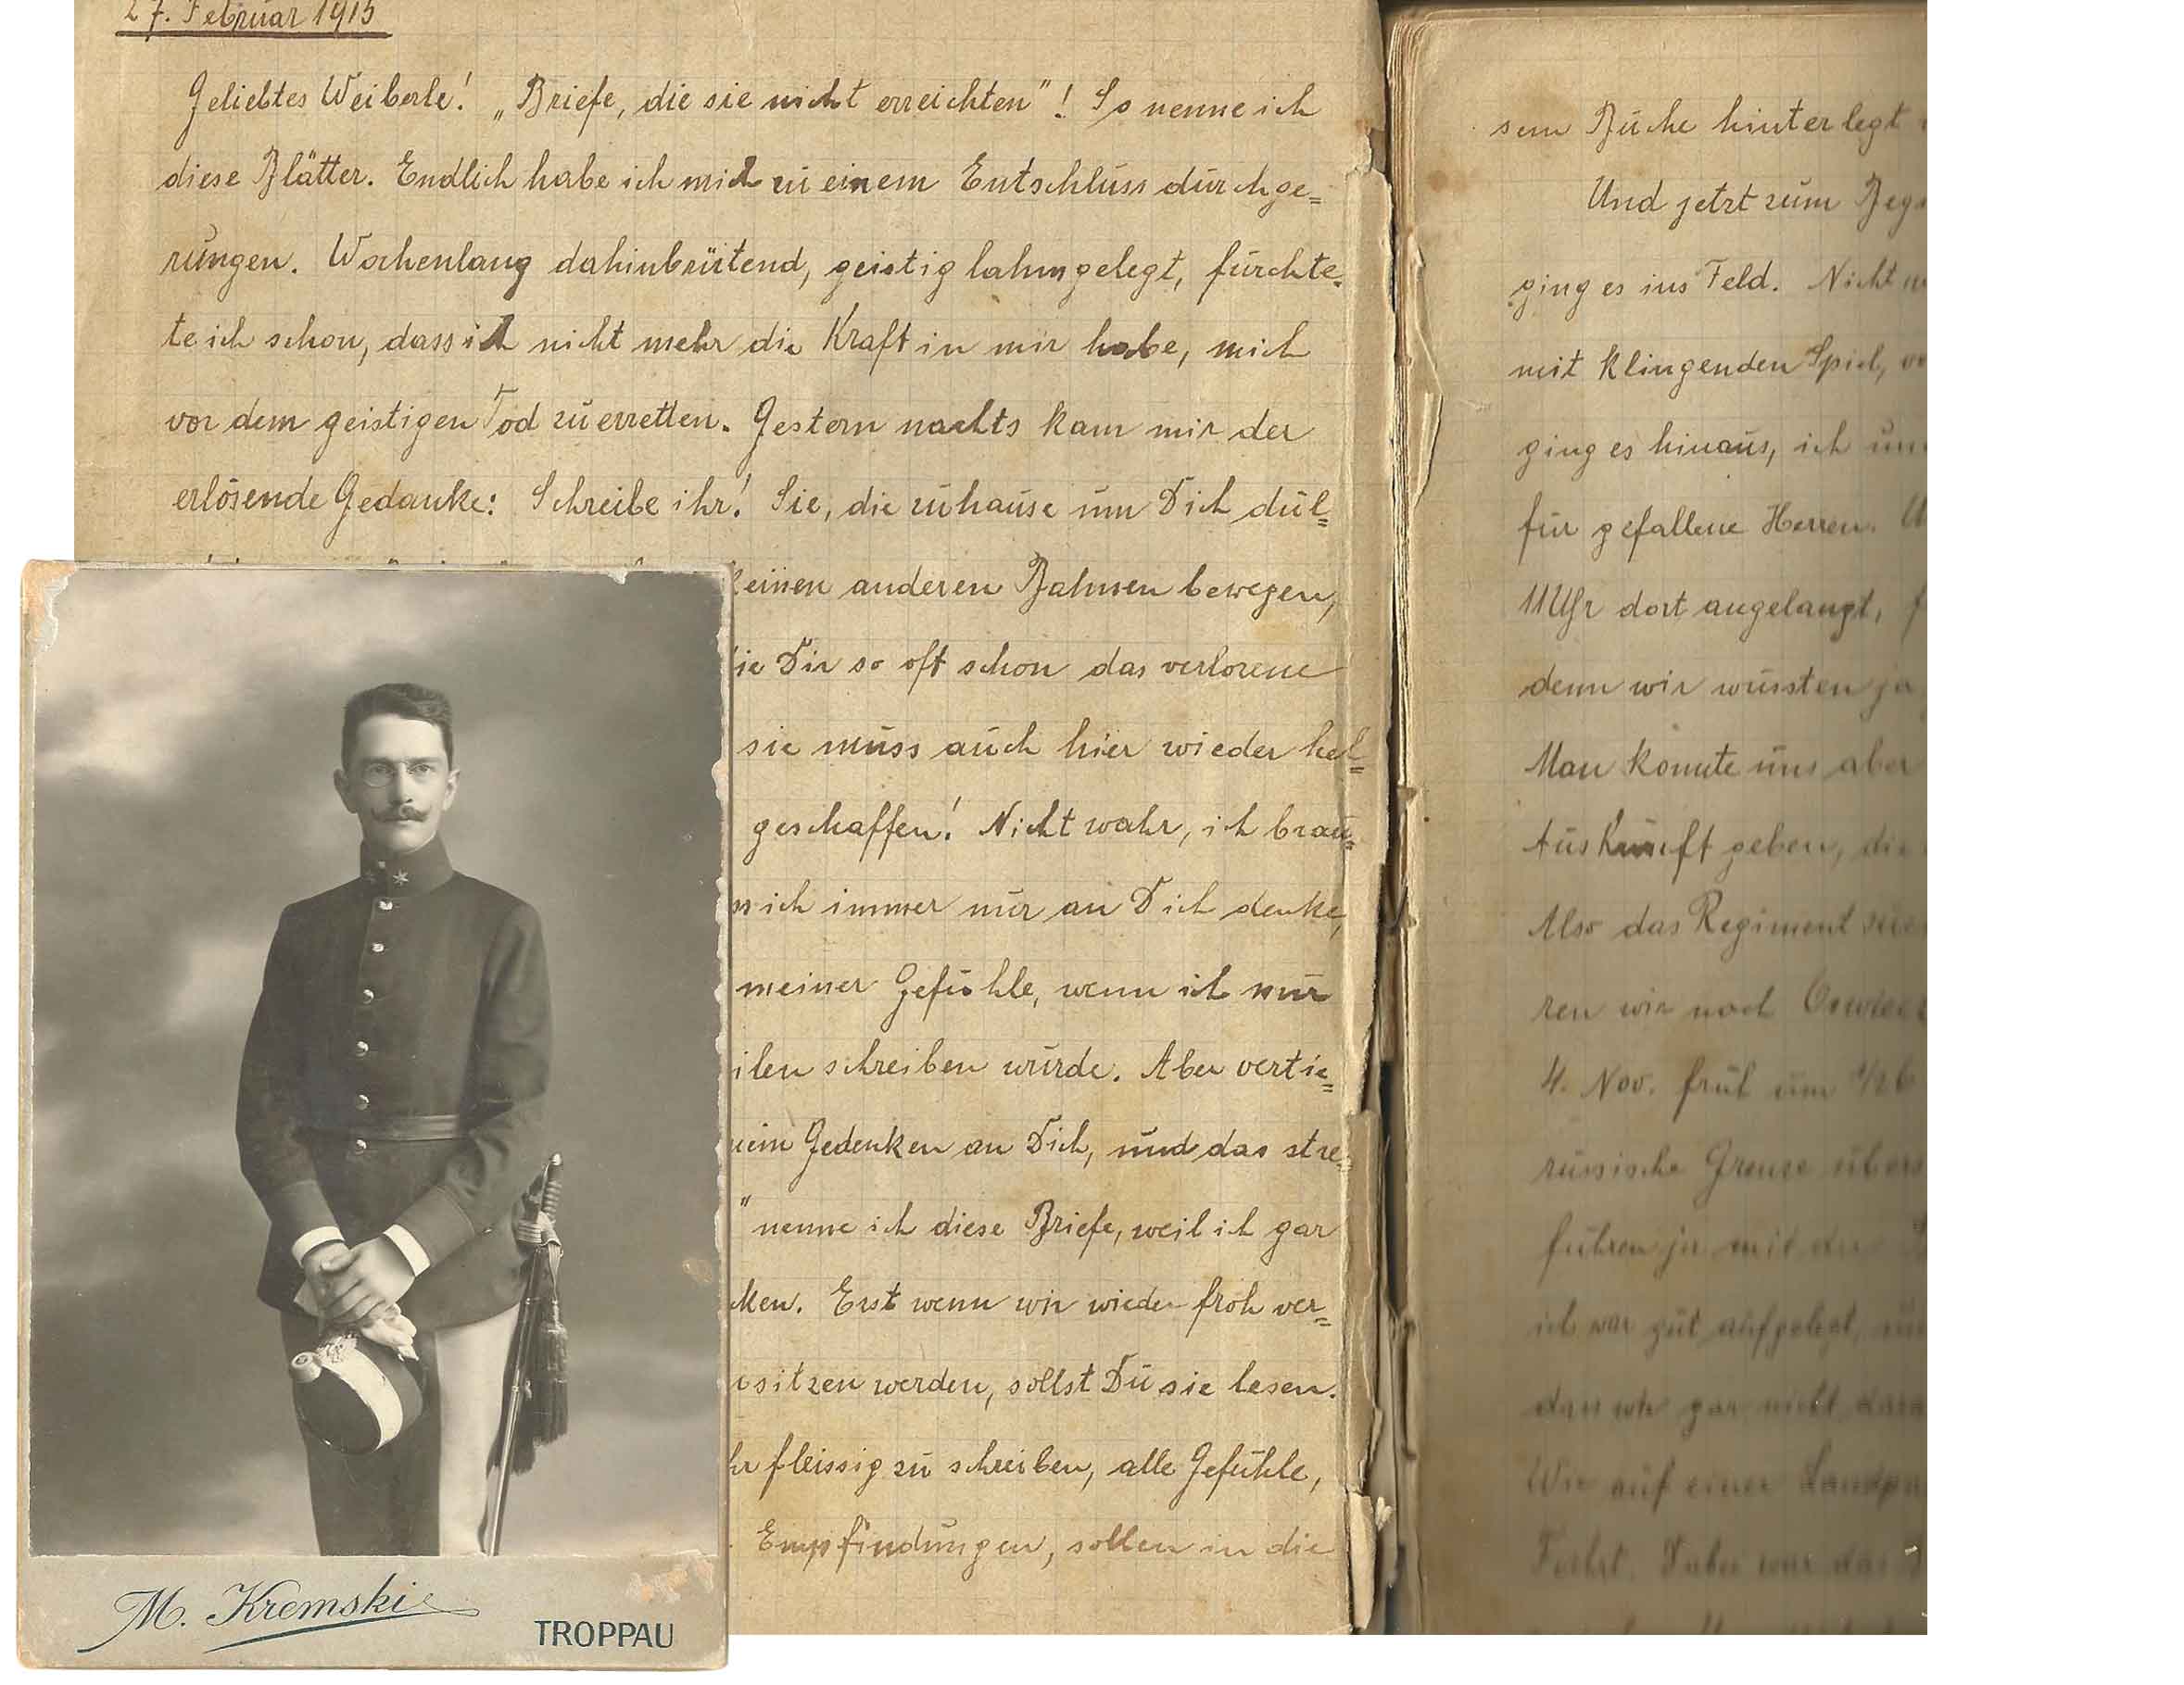 27. Februar 1915
Geliebtes Weiberle! „Briefe, die sie nicht erreichten"! So nenne ich
diese Blätter. Endlich habe ich mich zu einem Entschluss durchge=
rungen. Wochenlang dahinbrütend, geistig lahmgelegt, fürchte=
te ich schon, dass ich nicht mehr die Kraft in mir habe, mich
vor dem geistigen Tod zu erretten. Gestern nachts kam mir der
erlösende Gedanke: Schreibe ihr! Sie, die zuhause um Dich dul=
keinen anderen Bahnen bewegen,
die Dir so oft schon das verlorene
sie muss auch hier wieder hel=
geschaffen! Nicht wahr, ich brau=
ich immer nur an Dich denke,
meiner Gefühle, wenn ich nur
ilen schreiben würde. Aber vertie=
mein Gedenken an Dich, und das stre=
" nenne ich diese Briefe, weil ich gar
cken. Erst wenn wir wieder froh ver=
sitzen werden, sollst Du sie lesen.
hr fleissig zu schreiben, alle Gefühle,
Empfindungen, sollen in die
sem Buche hinterlegt
Und jetzt zum Beg
ging es ins Feld. Nicht
mit klingenden Spiel,
ging es hinaus, ich
für gefallene Herren.
11 Uhr dort angelangt,
denn wir wussten ja
Man konnte uns aber
Auskunft geben, die
Also das Regiment
ren wir nach
4. Nov. früh um 1/26
russische Grenze übers
fuhren ja mit der
ich war gut aufgelegt,
dass wir gar nicht
Wie auf einer Landpa
Fahrt. Dabei war das
M. Kremski
TROPPAU